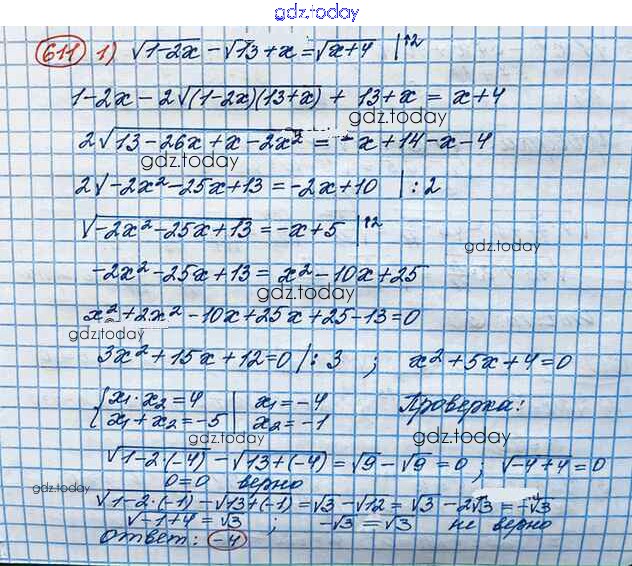 gdz.today
611 1) √1-2x - √13+x = √x+4 |↑2
1-2x-2√(1-2x)(13+x) + 13+x = x+4
2√13-26x+x-2x² = -x+14-x-4
gdz.today
2√-2x²-25x+13 = -2x+10 | :2
√-2x²-25x+13 = -x+5 |↑2
gdz.today
-2x²-25x+13 = x²-10x+25
gdz.today
x²+2x²-10x+25x+25-13=0
gdz.today
3x²+15x+12=0 | : 3 ; x²+5x+4=0
{x₁·x₂=4 | x₁=-4 Проверка:
x₁+x₂=-5 | x₂=-1
gdz.today gdz.today
√1-2·(-4) - √13+(-4) = √9 - √9 = 0 ; √-4+4 = 0
0=0 верно
gdz.today
√1-2·(-1) - √13+(-1) = √3 - √12 = √3 - 2√3 = -√3
√-1+4 = √3 ; -√3 = √3 не верно
ответ: -4
gdz.today